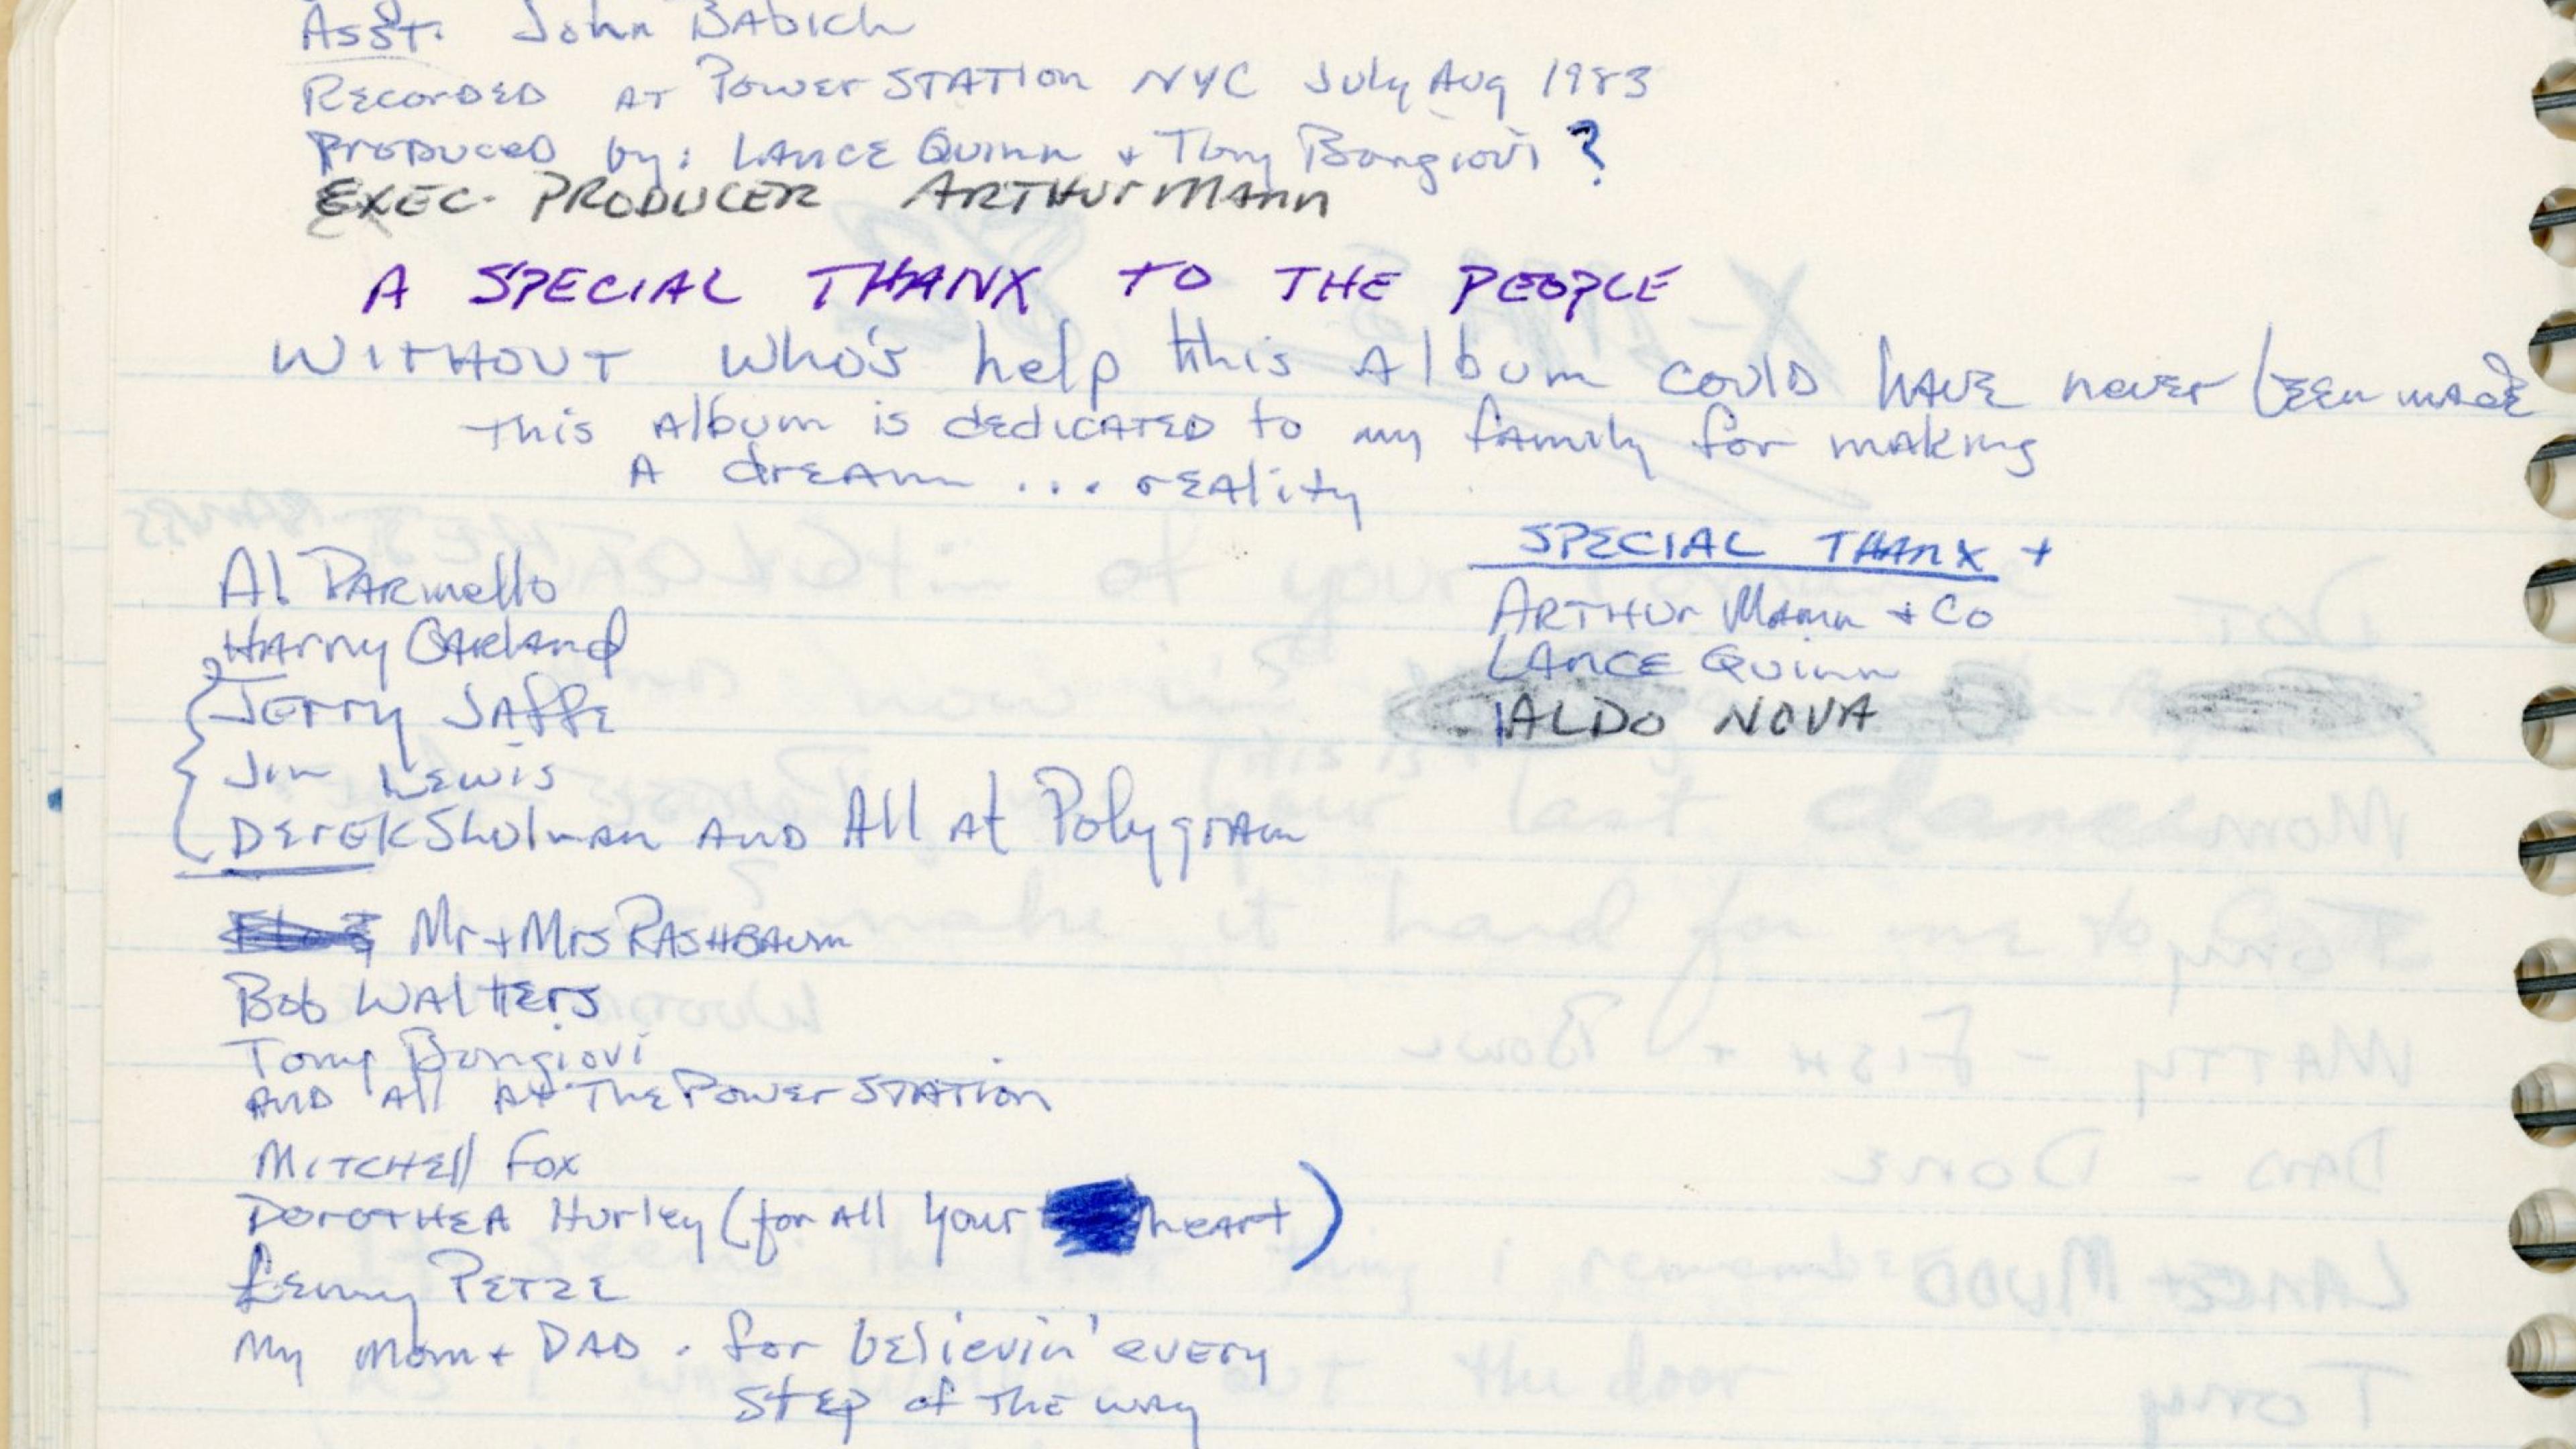 Asst. John Babich
Recorded at Power Station NYC July Aug 1983
Produced by: Lance Quinn + Tony Bongiovi ?
Exec. Producer Arthur Mann
A SPECIAL THANX TO THE PEOPLE
WITHOUT who's help this Album could have never been made
This Album is dedicated to my family for making
A dream ... reality
SPECIAL THANX +
Arthur Mann + Co
Lance Quinn
ALDO NOVA
Al Parmello
Harry Garland
Jerry Jaffe
Jim Lewis
Derek Shulman AND All at Polygram
Mr + Mrs Rashbaum
Bob Walters
Tony Bongiovi
AND All At The Power Station
Mitchell Fox
Dorothea Hurley (for all your heart)
Lenny Petze
My Mom + DAD. for believin' every
step of the way